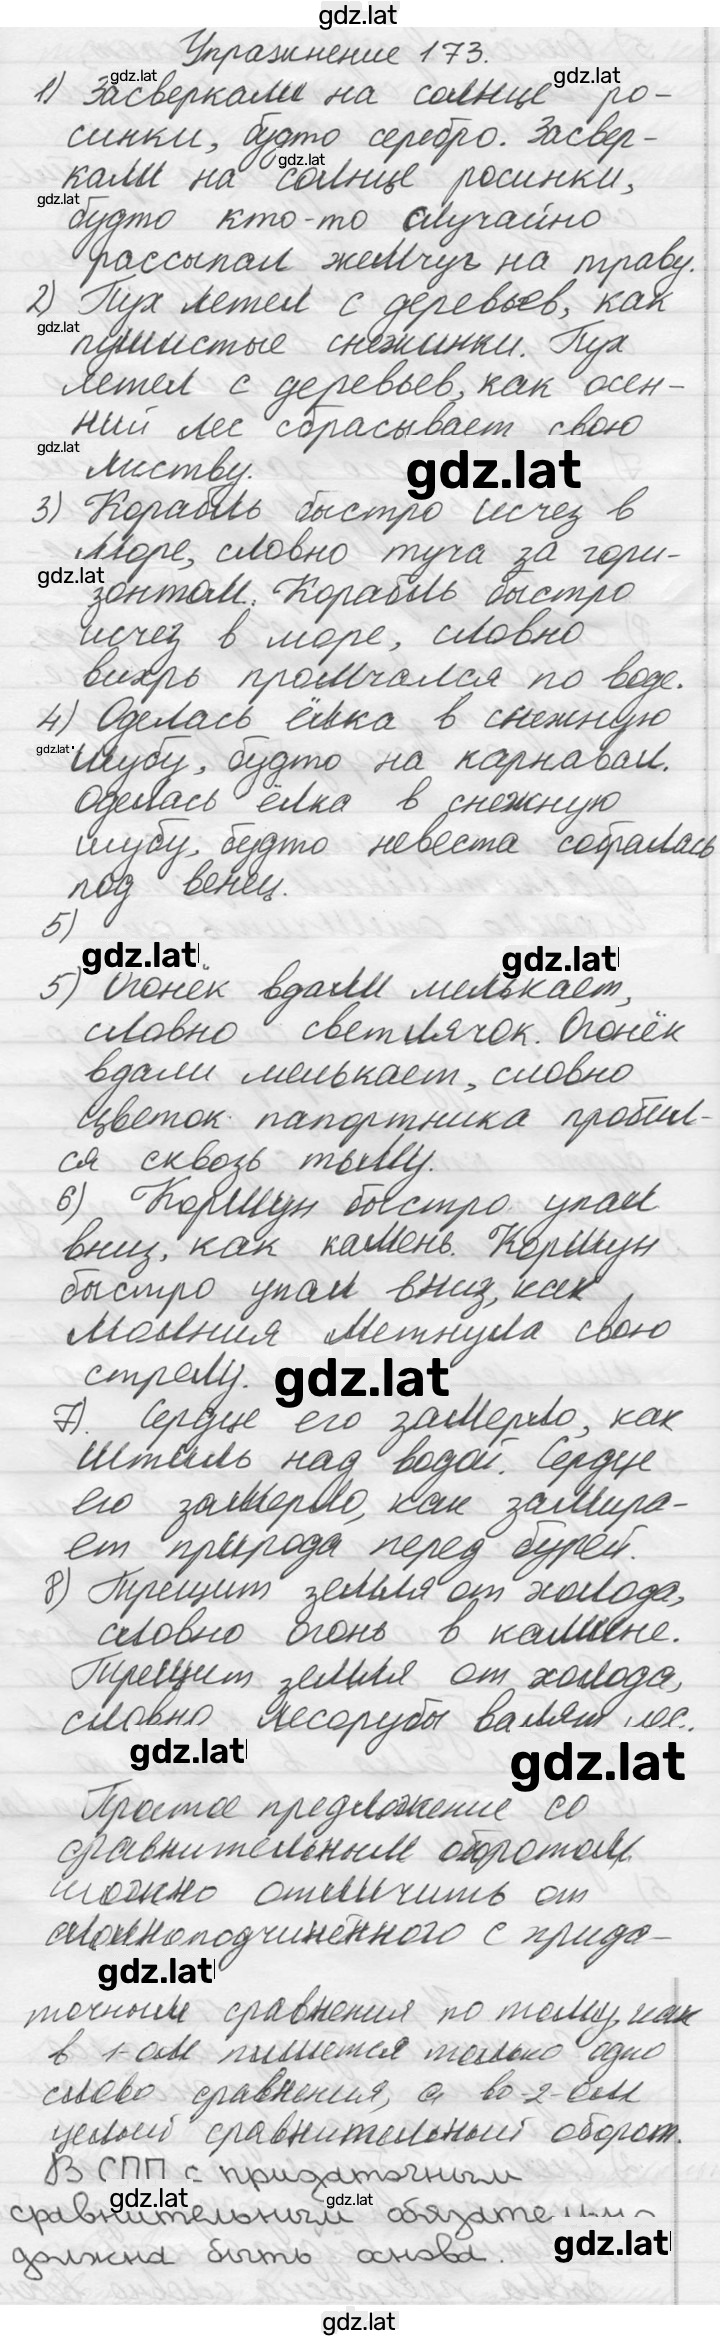 gdz.lat
Упражнение 173.
gdz.lat
gdz.lat
1) Засверкали на солнце ро-
синки, будто серебро. Засвер-
gdz.lat
кали на солнце росинки,
gdz.lat
будто кто-то случайно
рассыпал жемчуг на траву.
2) Пух летел с деревьев, как
gdz.lat
пушистые снежинки. Пух
летел с деревьев, как осен-
ний лес сбрасывает свою
gdz.lat
листву.
gdz.lat
3) Корабль быстро исчез в
море, словно туча за гори-
gdz.lat
зонтом. Корабль быстро
исчез в море, словно
вихрь промчался по воде.
4) Оделась ёлка в снежную
gdz.lat
шубу, будто на карнавал.
Оделась ёлка в снежную
шубу, будто невеста собралась
под венец.
5)
gdz.lat
gdz.lat
5) Огонёк вдали мелькает,
словно светлячок. Огонёк
вдали мелькает, словно
цветок папортника пробил-
ся сквозь тьму.
6) Коршун быстро упал
вниз, как камень. Коршун
быстро упал вниз, как
молния метнула свою
стрелу.
gdz.lat
7). Сердце его замерло, как
штиль над водой. Сердце
его замерло, как замира-
ет природа перед бурей.
8) Трещит земля от холода,
словно огонь в камине.
Трещит земля от холода,
словно лесорубы валят лес.
gdz.lat
gdz.lat
Простое предложение со
сравнительным оборотом
можно отличить от
сложноподчинённого с прида-
gdz.lat
точным сравнения по тому, как
в 1-ом пишется только одно
слово сравнения, а во-2-ом
целый сравнительный оборот.
В СПП с придаточным
gdz.lat
gdz.lat
сравнительным обязательно
должна быть основа.
gdz.lat
gdz.lat